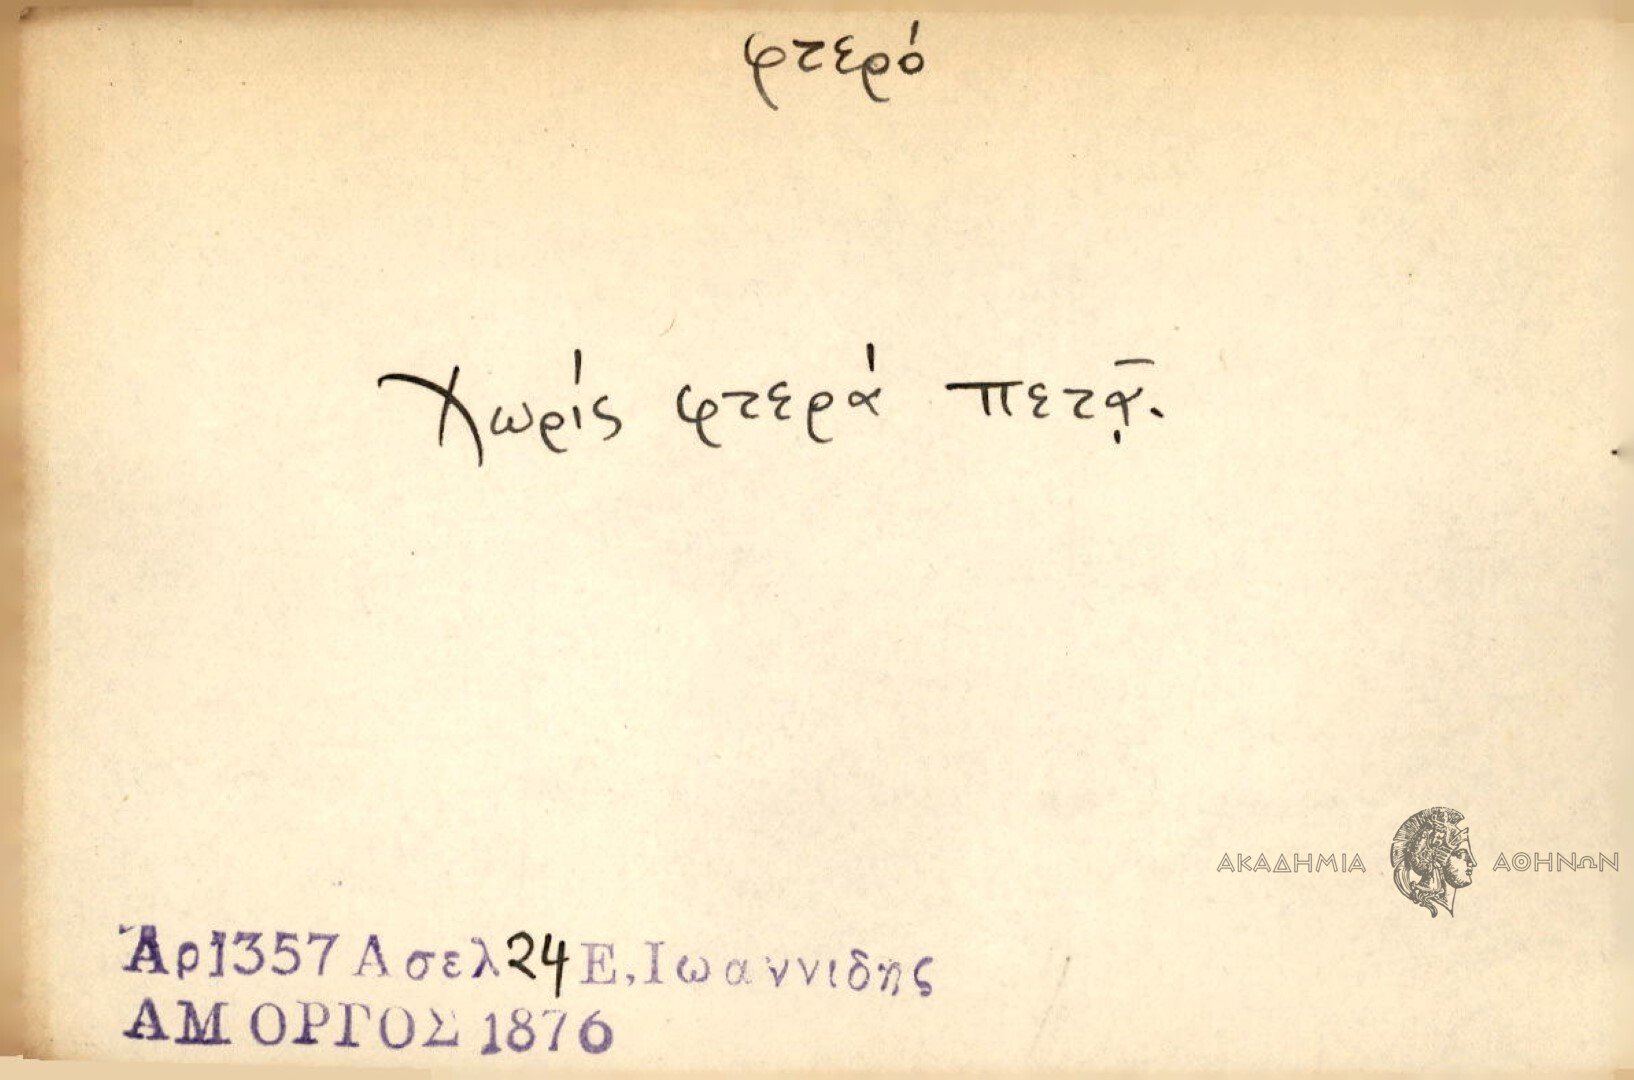 φτερό
Χωρίς φτερά πετᾷ.
ΑΚΑΔΗΜΙΑ ΑΘΗΝΩΝ
Ἀρ1357 Α σελ 24 Ε. Ιωαννιδης
ΑΜΟΡΓΟΣ 1876